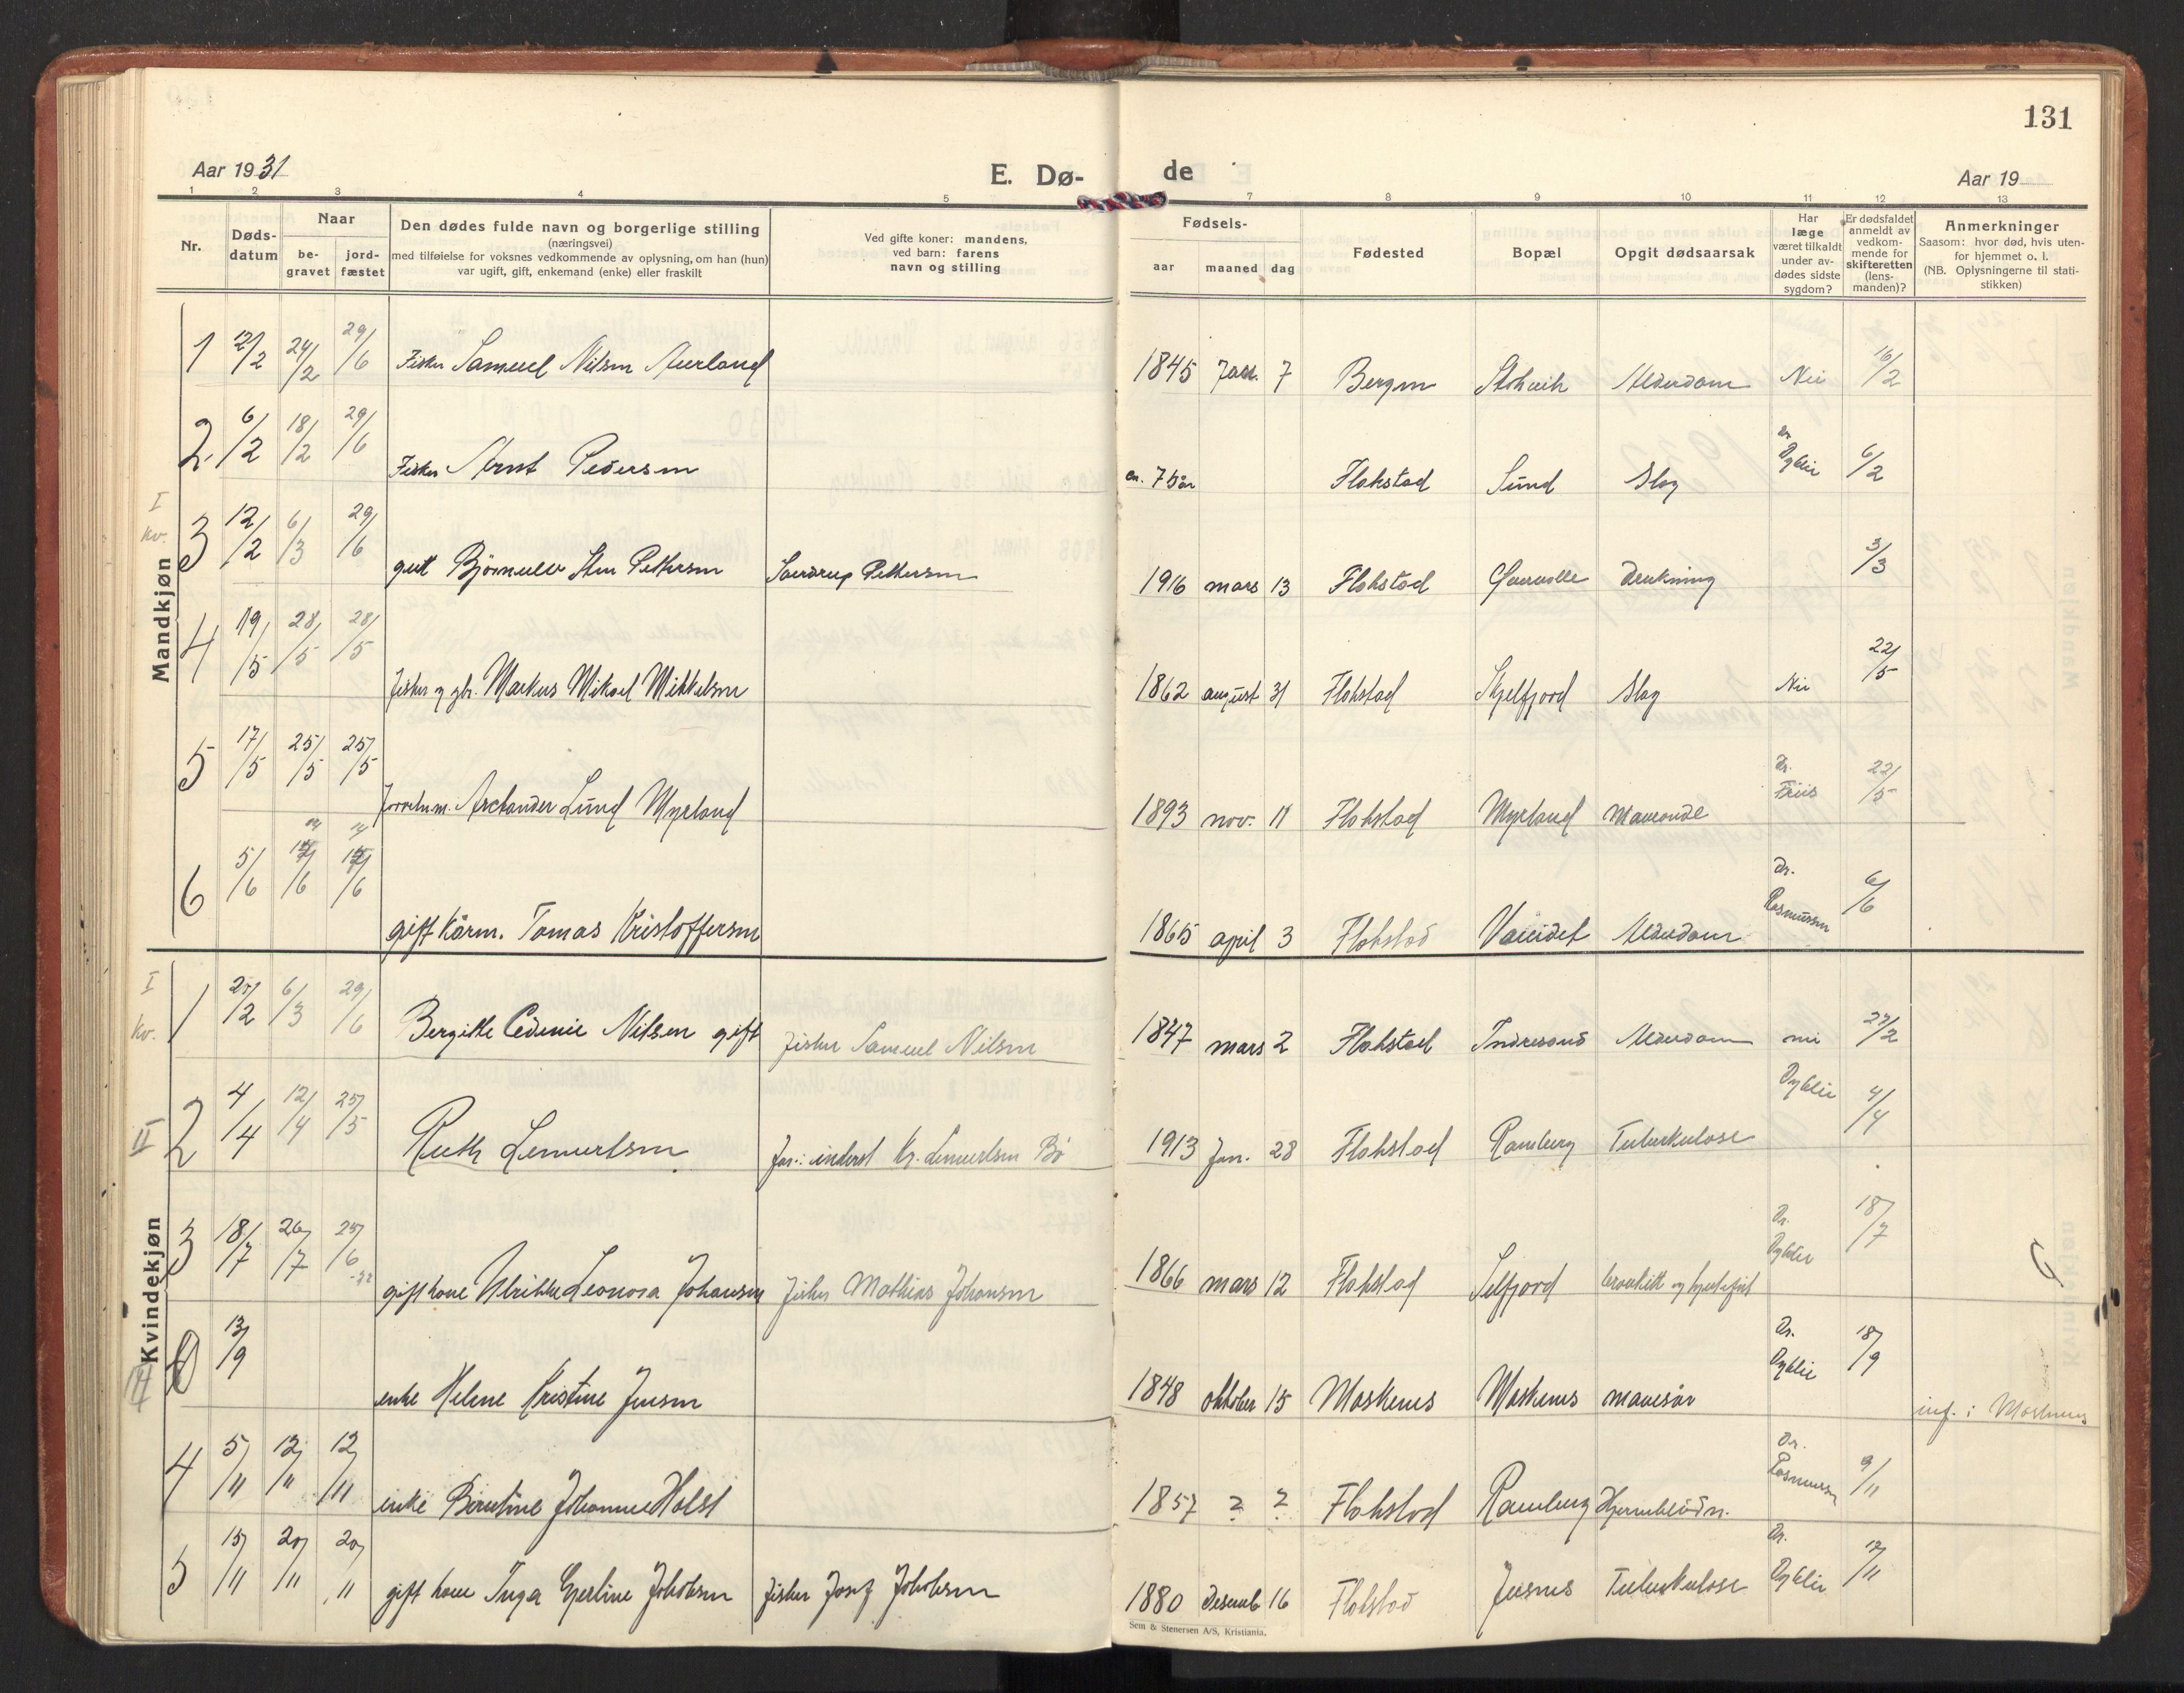 131
Aar 1931 E. Dø- de Aar 19
1 2 3 4 5 7 8 9 10 11 12 13
Nr. Døds-datum Naar be-gravet jord-fæstet Den dødes fulde navn og borgerlige stilling (næringsvei) med tilføielse for voksnes vedkommende av oplysning, om han (hun) var ugift, gift, enkemand (enke) eller fraskilt Ved gifte koner: mandens, ved barn: farens navn og stilling Fødsels- aar maaned dag Fødested Bopæl Opgit dødsaarsak Har læge været tilkaldt under av-dødes sidste sygdom? Er dødsfaldet anmeldt av vedkom-mende for skifteretten (lens-manden)? Anmerkninger Saasom: hvor død, hvis uten-for hjemmet o. l. (NB. Oplysningerne til stati-stikken)
Mandkjøn
I kv.
1 12/2 24/2 29/6 Fisker Samuel Nilsen Aurland 1845 Jan. 7 Bergen Alderdom Nei 16/2
2. 6/2 18/2 29/6 Fisker Arnt Pedersen ca. 75 år Flakstad Sund Slag Dr 6/2
3 12/2 6/3 29/6 gut Pettersen Pettersen 1916 mars 13 Flakstad Drukning 3/3
4 19/5 28/5 28/5 fisker og gbr. Markus Mikael Mikkelsen 1862 august 31 Flakstad Skjelfjord Slag Nei 22/5
5 17/5 25/5 25/5 Lund Myrland 1893 nov. 11 Flakstad Myrland Dr. Friis 22/5
6 5/6 14/6 14/6 gift kårm. Tomas Kristoffersen 1865 april 3 Flakstad Vareidet Alderdom Dr. Rasmussen 6/6
Kvindekjøn
I kv.
1 6/3 29/6 Bergitte Nilsen gift fisker Samuel Nilsen 1847 mars 2 Flakstad Indresand Alderdom nei 27/2
II 2 4/4 12/4 25/5 Ruth Lennertsen far: inderst Kr. Lennertsen Bø 1913 Jan. 28 Flakstad Ramberg Tuberkulose 4/4
3 18/7 26/7 25/6 -32 gift kone Ulrikke Leonora Johansen fisker Mathias Johansen 1866 mars 12 Flakstad Selfjord Dr. 18/7
0 13/9 enke Helene Kristine Jensen 1848 oktober 15 Moskenes Moskenes mavesår Dr. 18/9 inf. i Moskenes
4 5/11 12/11 12/11 enke Johanna Holst 1857 ? ? Flakstad Ramberg Hjerneblødn. Dr. Rasmussen 9/11
5 15/11 20/11 20/11 gift kone Inga Jakobsen fisker Josef Jakobsen 1880 Desemb 16 Flakstad Tuberkulose Dr. 17/11
Sem & Stenersen A/S, Kristiania.